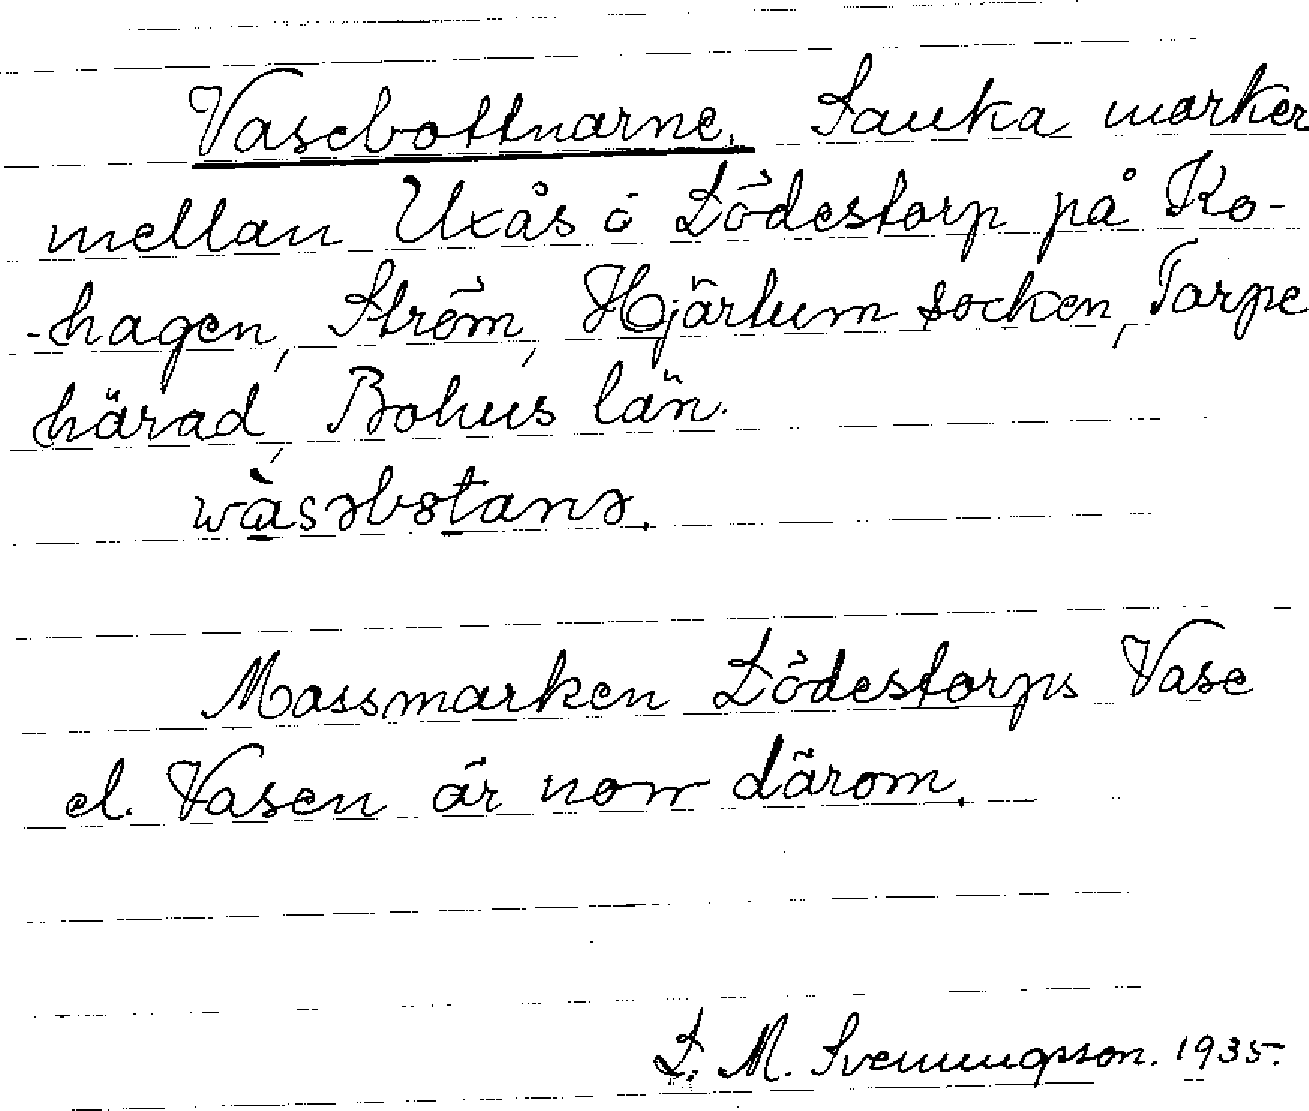 Vasebottnarne. Sauka marker
mellan Uxås ö Lödestorp på Ko-
-hagen, Ström, Hjärtum socken, Torpe
härad, Bohus län.
Massmarken Lödestorps Vase
el. Vasen är norr därom.
L. M. Svenungsson. 1935.